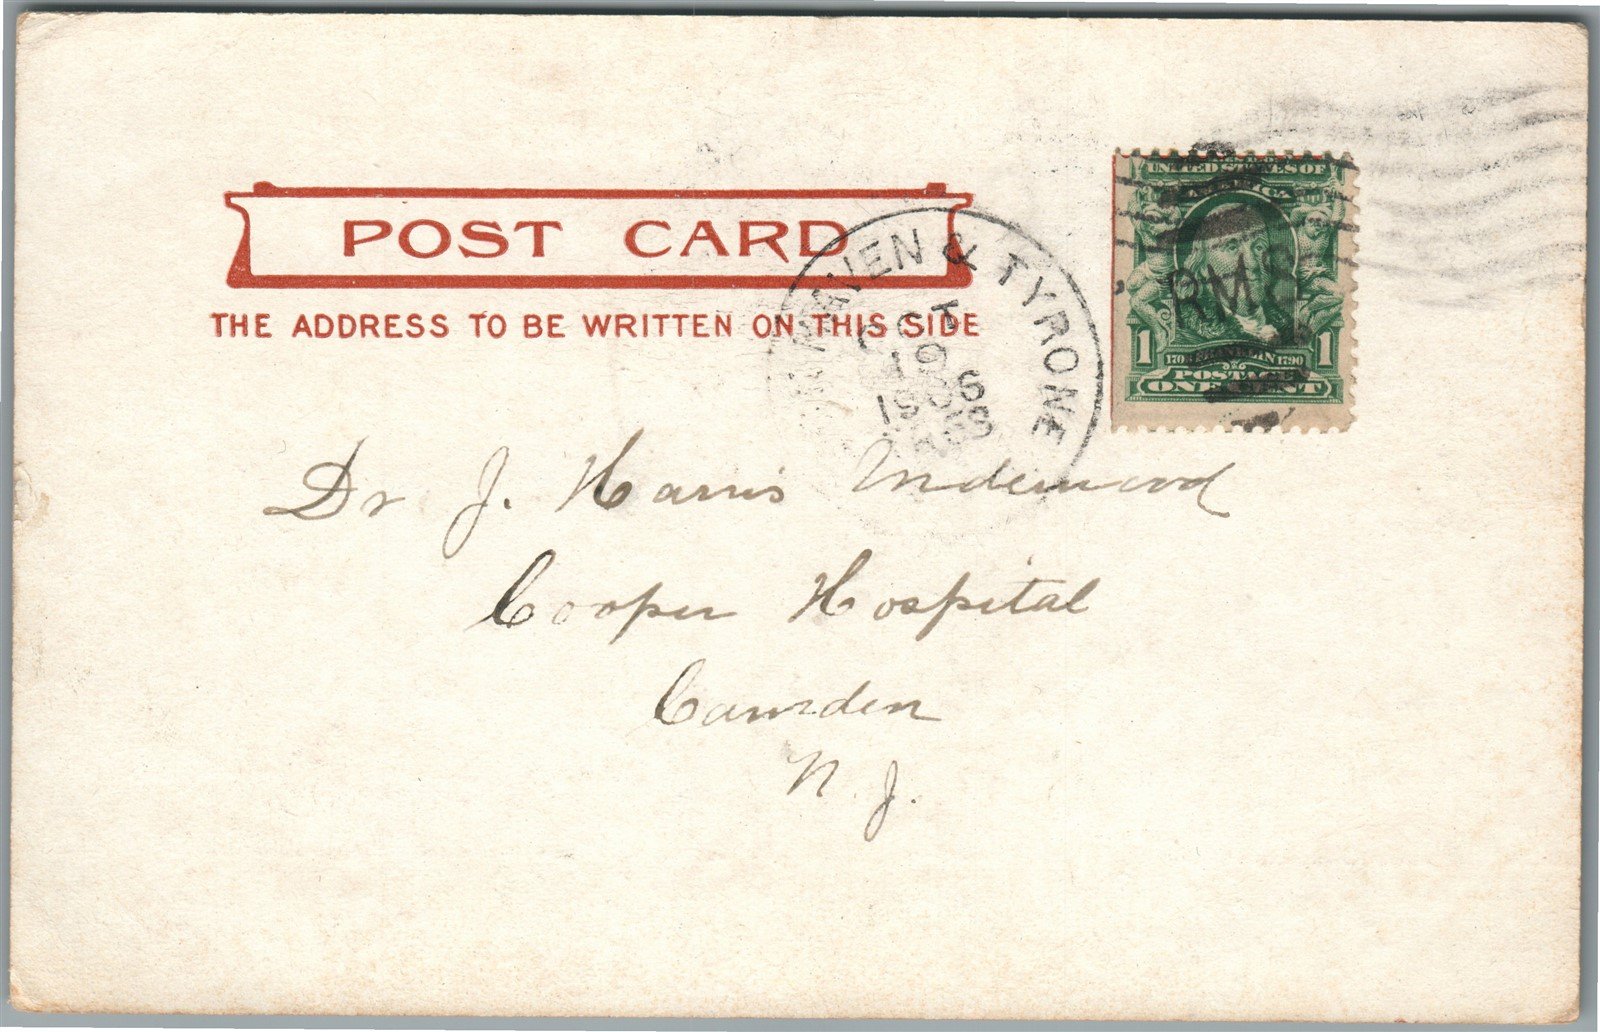 POST CARD
THE ADDRESS TO BE WRITTEN ON THIS SIDE
HAVEN & TYRONE
OCT
19
1906
UNITED STATES OF
RMS
1 1
FRANKLIN 1790
POSTAGE
ONE CENT
Dr J. Harris Underwood
Cooper Hospital
Camden
N. J.